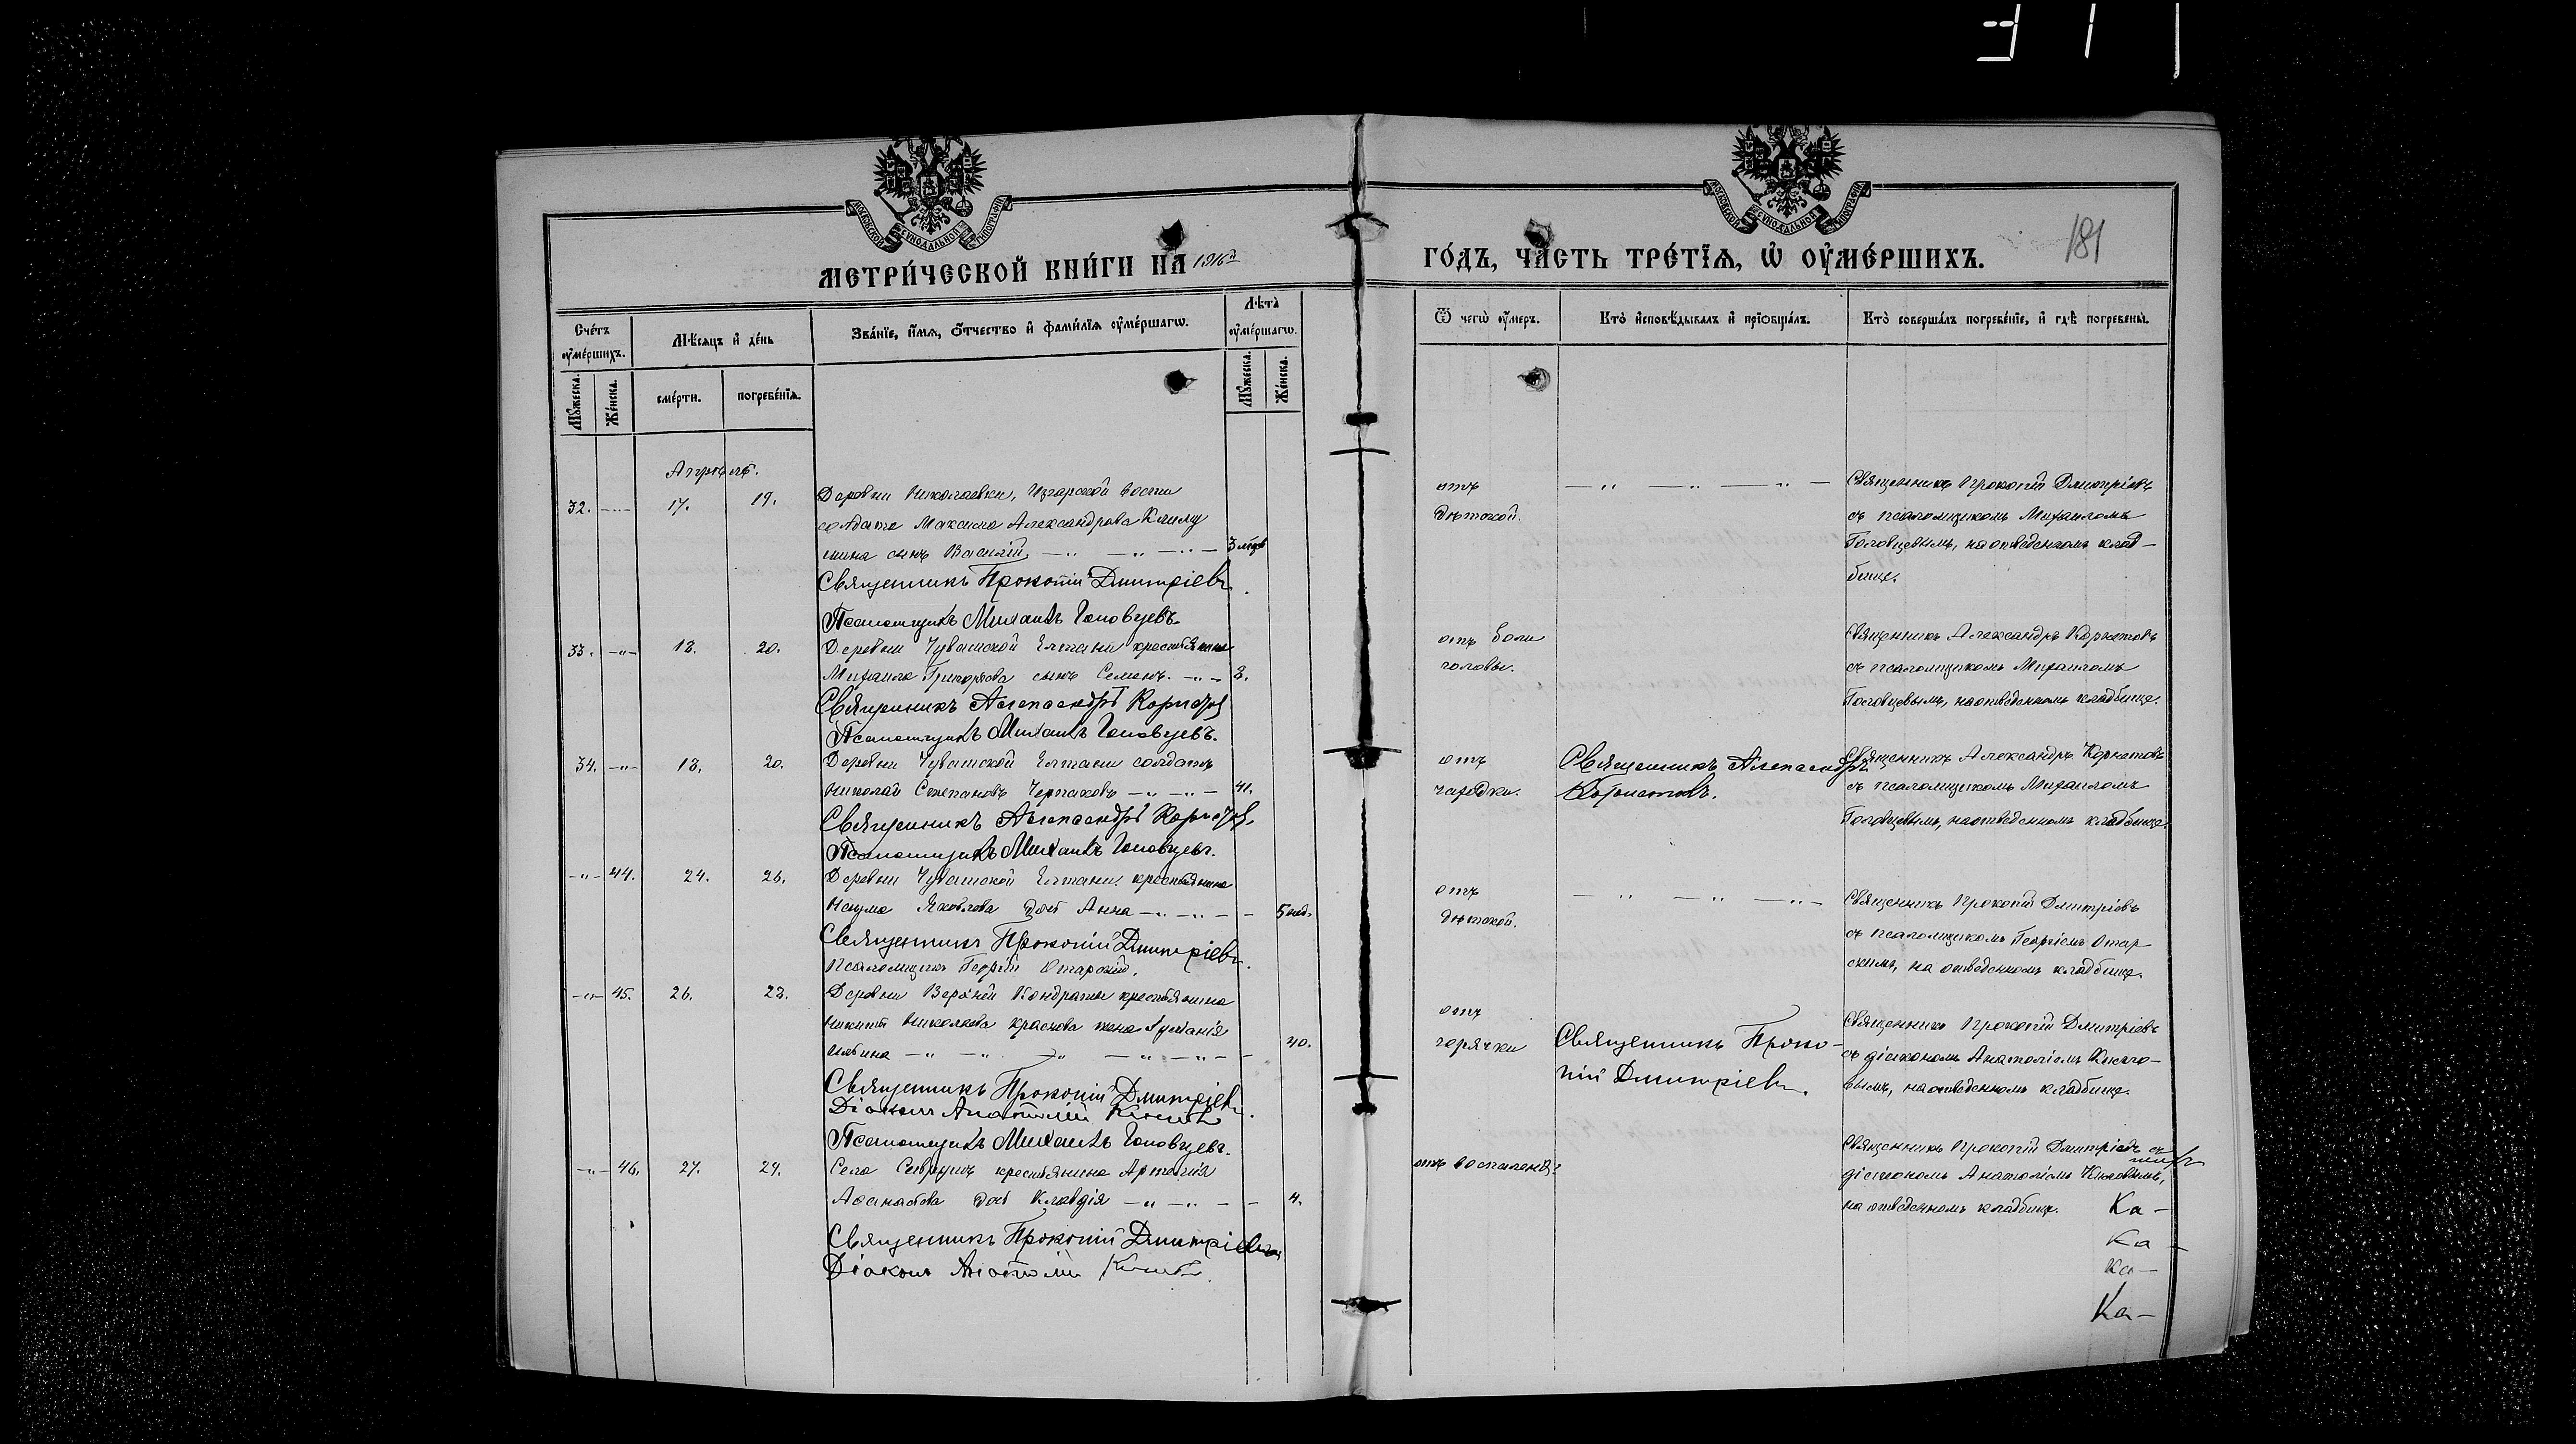 МЕТРИ́ЧЕСКОЙ КНИ́ГИ НА 1916й
ГО́ДЪ, ЧА́СТЬ ТРЕ́ТЇѦ, Ѡ҆ ОУ҆МЕ́РШИХЪ.
181
Сче́тъ оу҆ме́ршихъ.
Мѣ́сѧцъ и҆ де́нь
Зва́нїе, и҆́мѧ, ѻ҆́тчество и҆ фами́лїѧ оу҆ме́ршагѡ.
Лѣ́та оу҆ме́ршагѡ.
Ѿ чегѡ̀ оу҆́меръ.
Кто̀ и҆сповѣ́дывалъ и҆ прїѡбща́лъ.
Кто̀ соверша́лъ погребе́нїе, и҆ гдѣ̀ погребены̀.
Мꙋ́жеска.
Же́нска.
сме́рти.
погребе́нїѧ.
Мꙋ́жеска.
Же́нска.
Апрѣль.
32. —„— 17. 19. Деревни Николаевки, волости
солдата Максима Александрова
сынъ Василій —„ —„ —„— 3 мѣс
Священникъ Прокопій Дмитріевъ.
Псаломщикъ Михаилъ Головцевъ.
отъ
дѣтской.
—„ —„ —„ —
Священникъ Прокопій Дмитріевъ
съ псаломщикомъ Михаиломъ
Головцевымъ, на отведенномъ клад-
бище.
33. —„— 18. 20. Деревни Чувашской Елтани крестьянина
Михаила Григорьева сынъ Семенъ. —„— 2.
Священникъ Александръ
Псаломщикъ Михаилъ Головцевъ.
отъ боли
головы.
Священникъ Александръ
съ псаломщикомъ Михаиломъ
Головцевымъ, на отведенномъ кладбище.
34. —„— 18. 20. Деревни Чувашской Елтани солдатъ
Николай Степановъ —„ —„— 41.
Священникъ Александръ
Псаломщикъ Михаилъ Головцевъ.
отъ
чахотки.
Священникъ Александръ
Священникъ Александръ
съ псаломщикомъ Михаиломъ
Головцевымъ, на отведенномъ кладбище.
—„— 44. 24. 26. Деревни Чувашской Елтани крестьянина
Наума Яковлева дочь Анна —„ —„ — — 5 нед.
Священникъ Прокопій Дмитріевъ.
Псаломщикъ Георгій Отарскій.
отъ
дѣтской.
—„ —„ —„ —
Священникъ Прокопій Дмитріевъ
съ псаломщикомъ Георгіемъ Отар
скимъ, на отведенномъ кладбище.
—„— 45. 26. 28. Деревни Верхней Кондраты крестьянина
Никиты Николаева Краснова жена
—„ —„ —„ —„ —„ — — 40.
Священникъ Прокопій Дмитріевъ.
Діаконъ Анатолій
Псаломщикъ Михаилъ Головцевъ.
отъ
горячки
Священникъ Проко-
пій Дмитріевъ.
Священникъ Прокопій Дмитріевъ
съ діакономъ Анатоліемъ
вымъ, на отведенномъ кладбище.
—„— 46. 27. 29. Села крестьянина
Аѳанасьева дочь Клавдія —„ —„ — — 4.
Священникъ Прокопій Дмитріевъ
Діаконъ Анатолій
отъ воспаленія
Священникъ Прокопій Дмитріевъ съ
діакономъ Анатоліемъ
на отведенномъ кладбище.
Ка-
Ка-
Ка-
Ка-